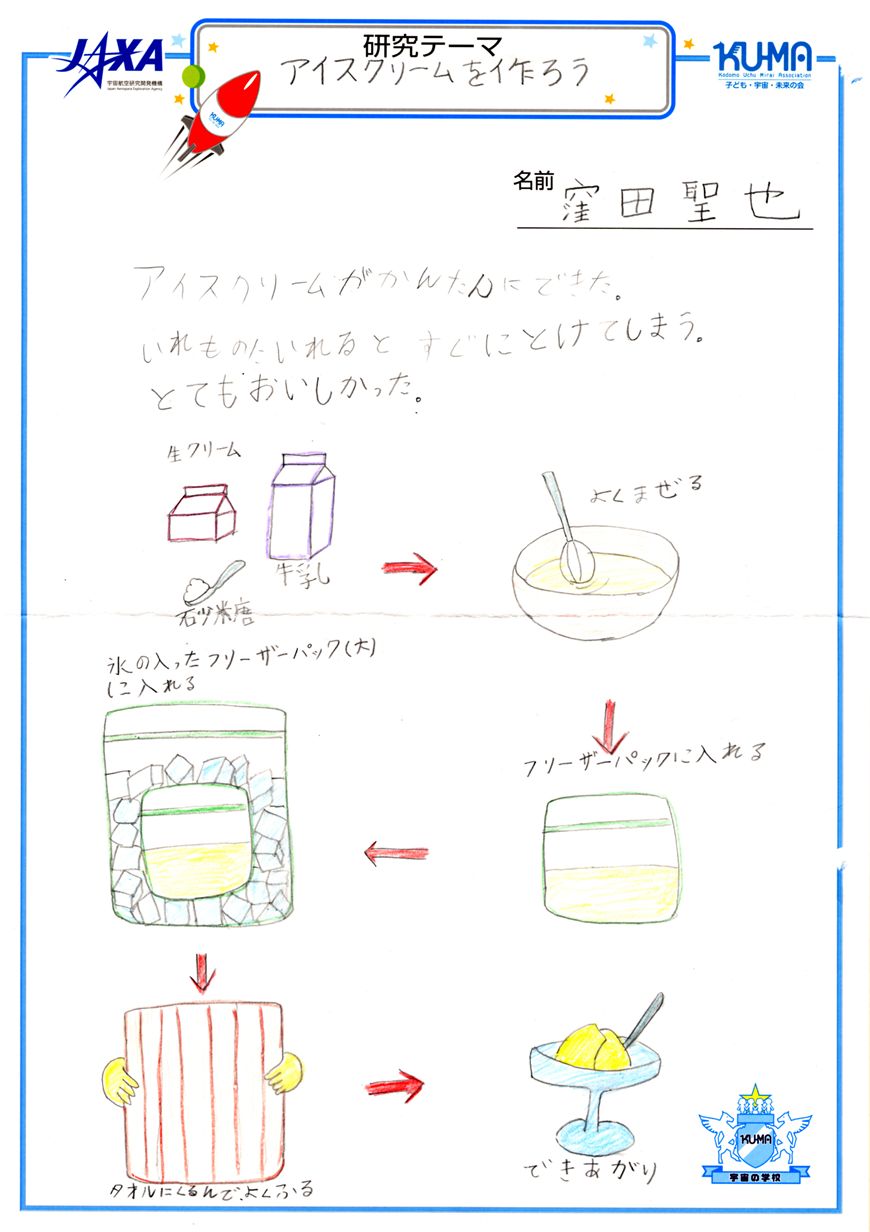 JAXA
宇宙航空研究開発機構
Japan Aerospace Exploration Agency
研究テーマ
アイスクリームを作ろう
KUMA
Kodomo Uchu Mirai Association
子ども・宇宙・未来の会
KUMA
名前 窪田聖也
アイスクリームがかんたんにできた。
いれものにいれるとすぐにとけてしまう。
とてもおいしかった。
生クリーム
牛乳
砂糖
よくまぜる
フリーザーパックに入れる
氷の入ったフリーザーパック(大)
に入れる
タオルにくるんで、よくふる
できあがり
KUMA
宇宙の学校